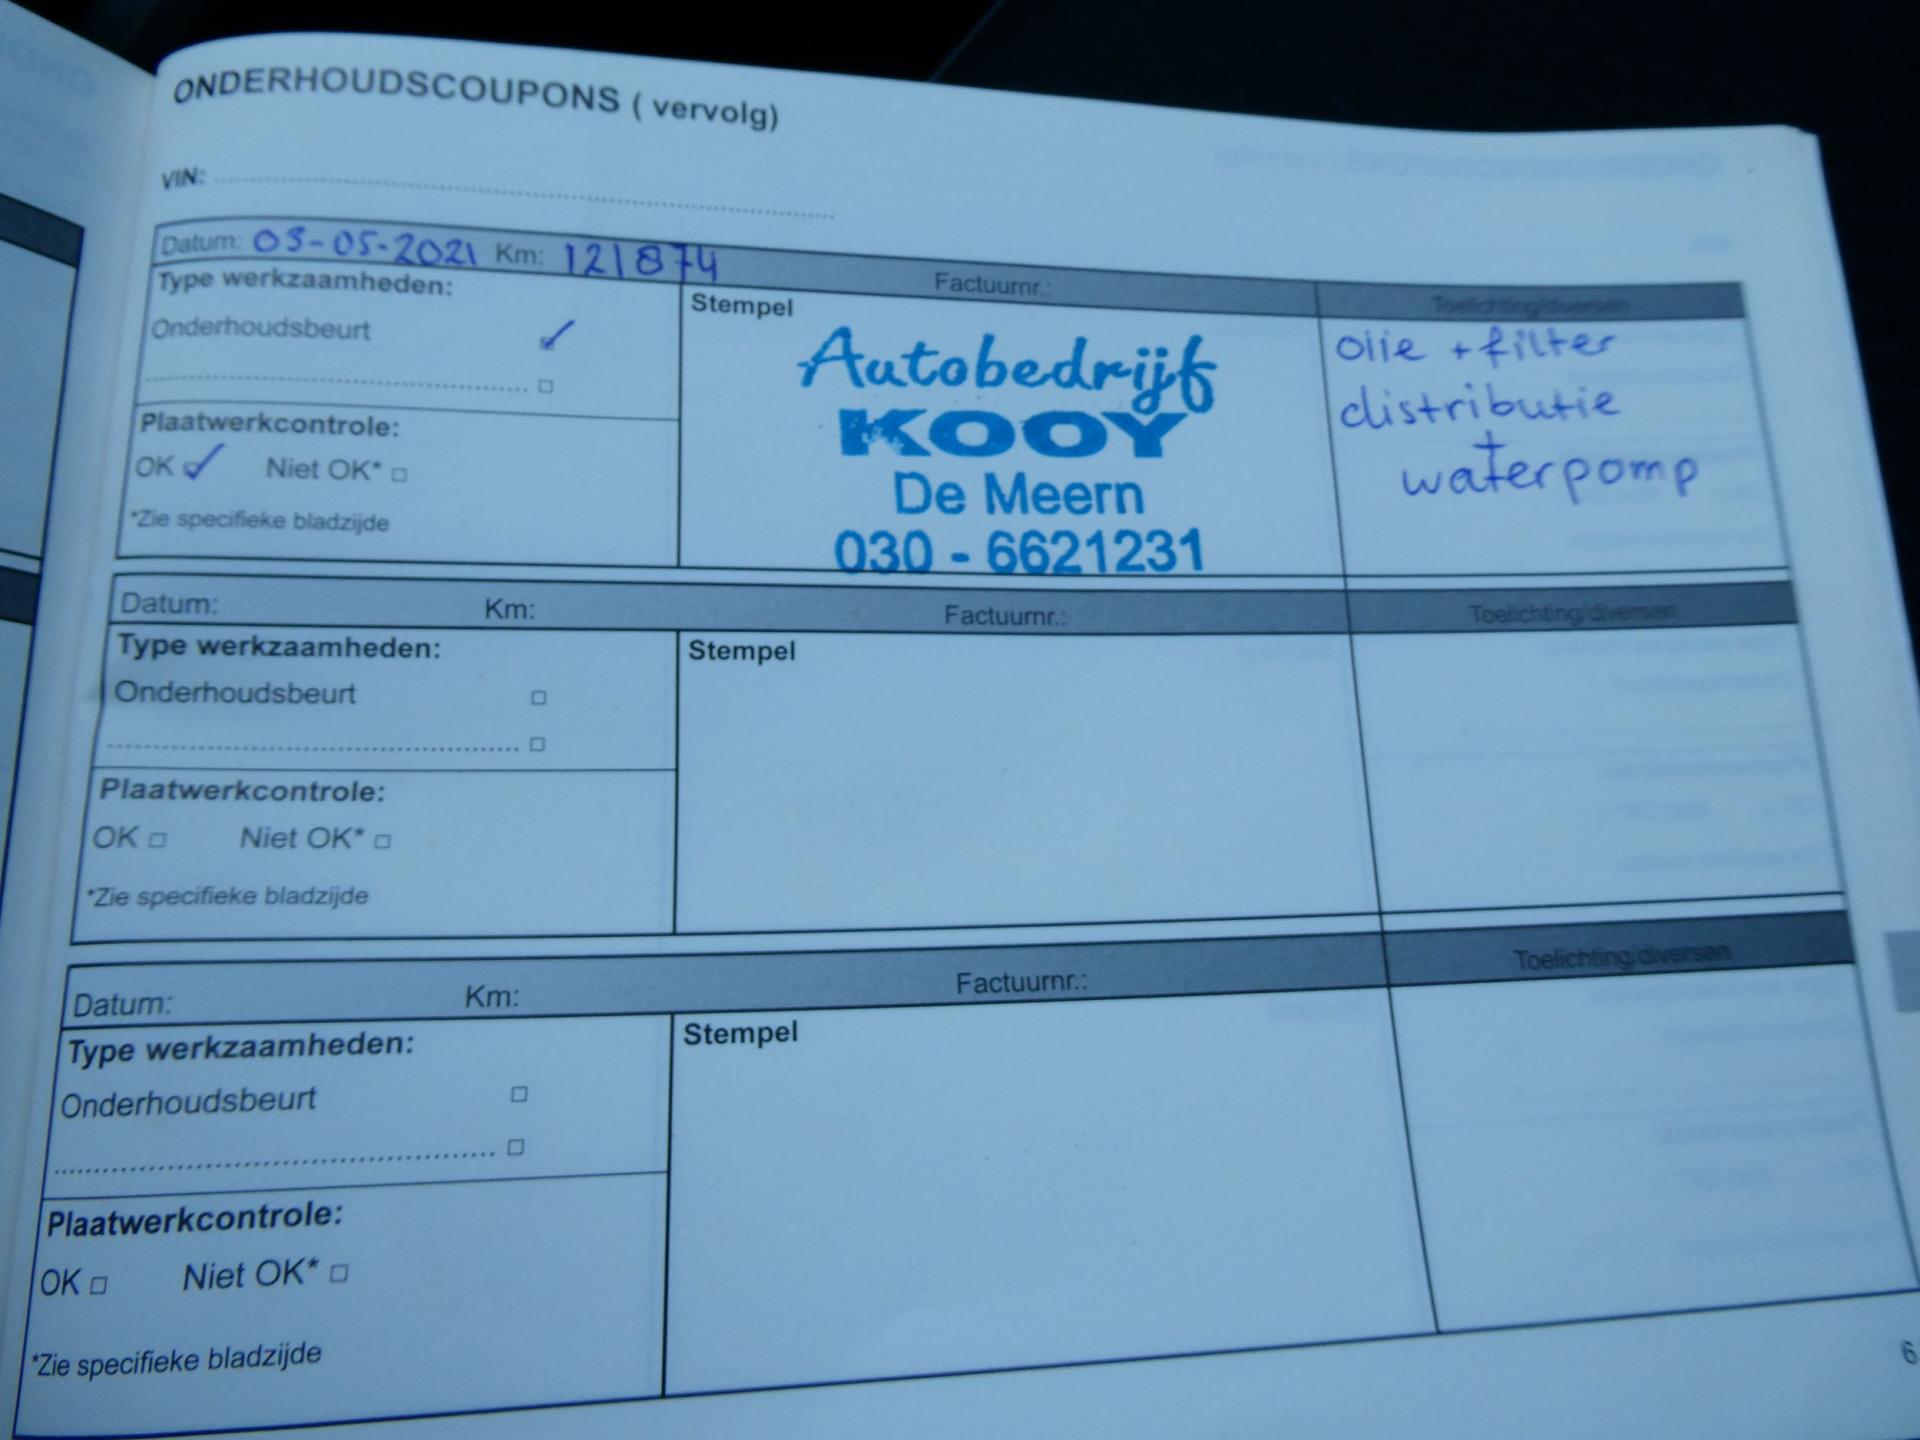 ONDERHOUDSCOUPONS ( vervolg)
VIN:
Datum: 03-05-2021 Km: 121874 Factuurnr.: Toelichting/diversen
Type werkzaamheden:
Onderhoudsbeurt
Plaatwerkcontrole:
OK Niet OK*
*Zie specifieke bladzijde
Stempel
Autobedrijf
KOOY
De Meern
030 - 6621231
olie + filter
distributie
+
waterpomp
Datum: Km: Factuurnr.: Toelichting/diversen
Type werkzaamheden:
Onderhoudsbeurt
Plaatwerkcontrole:
OK Niet OK*
*Zie specifieke bladzijde
Stempel
Datum: Km: Factuurnr.: Toelichting/diversen
Type werkzaamheden:
Onderhoudsbeurt
Plaatwerkcontrole:
OK Niet OK*
*Zie specifieke bladzijde
Stempel